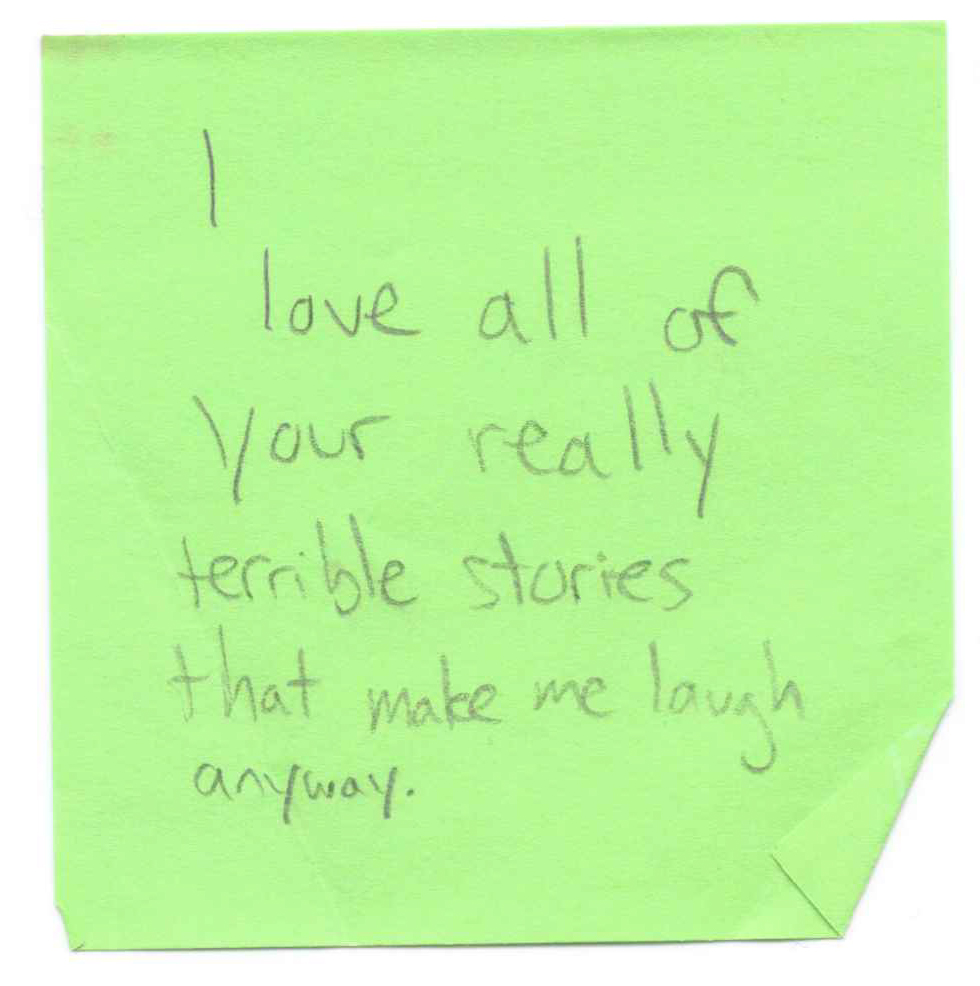 I
love all of
your really
terrible stories
that make me laugh
anyway.